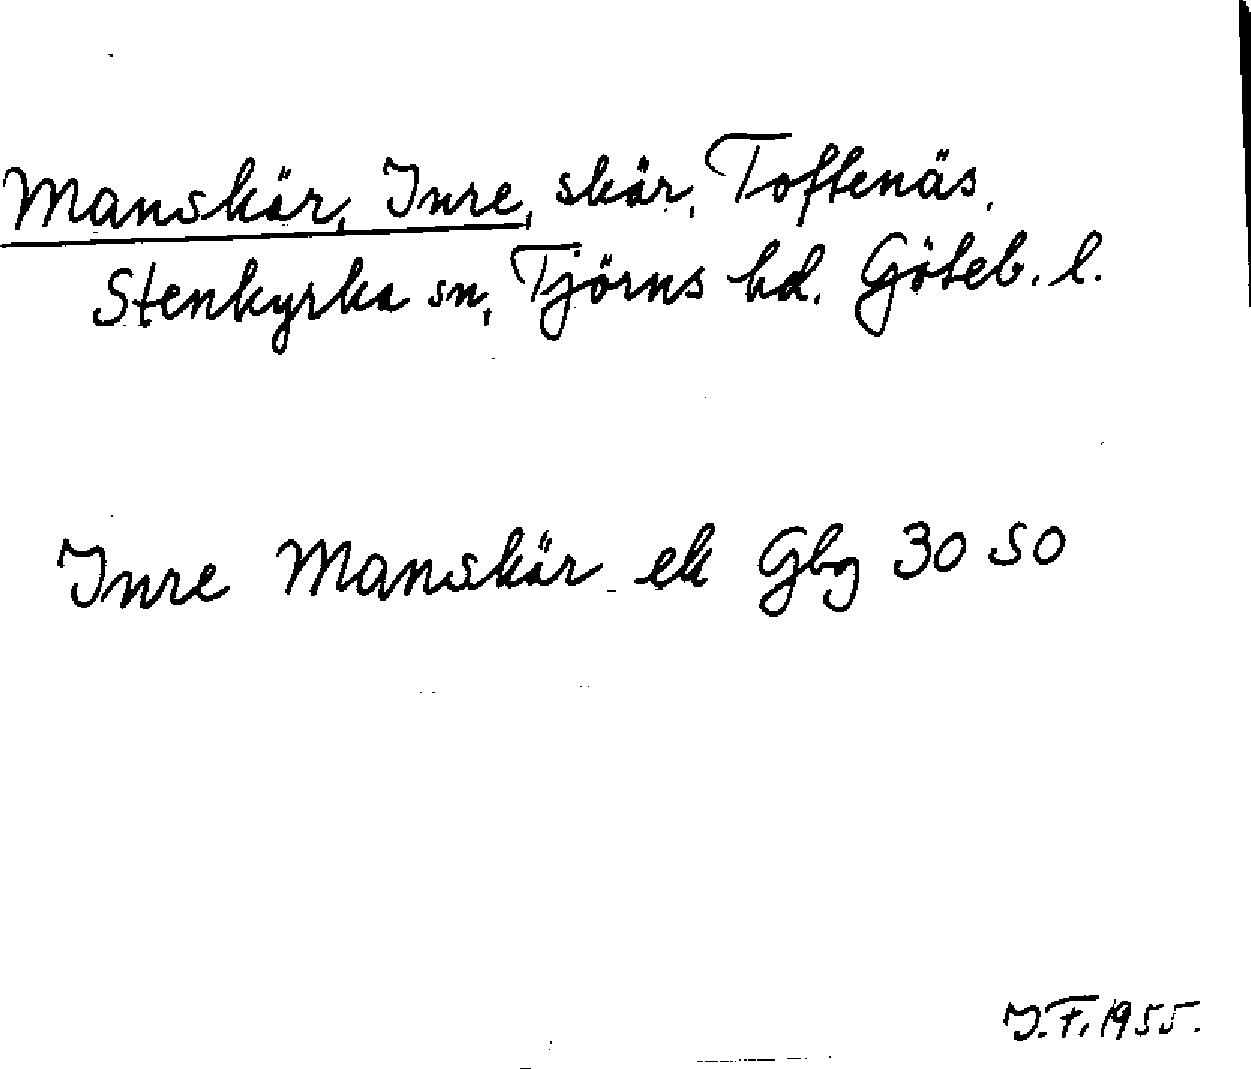 Manskär, Inre, skär, Toftenäs,
Stenkyrka sn, Tjörns hd. Göteb. l.
Inre Manskär ek Gbg 30 SO
I.F. 1955.